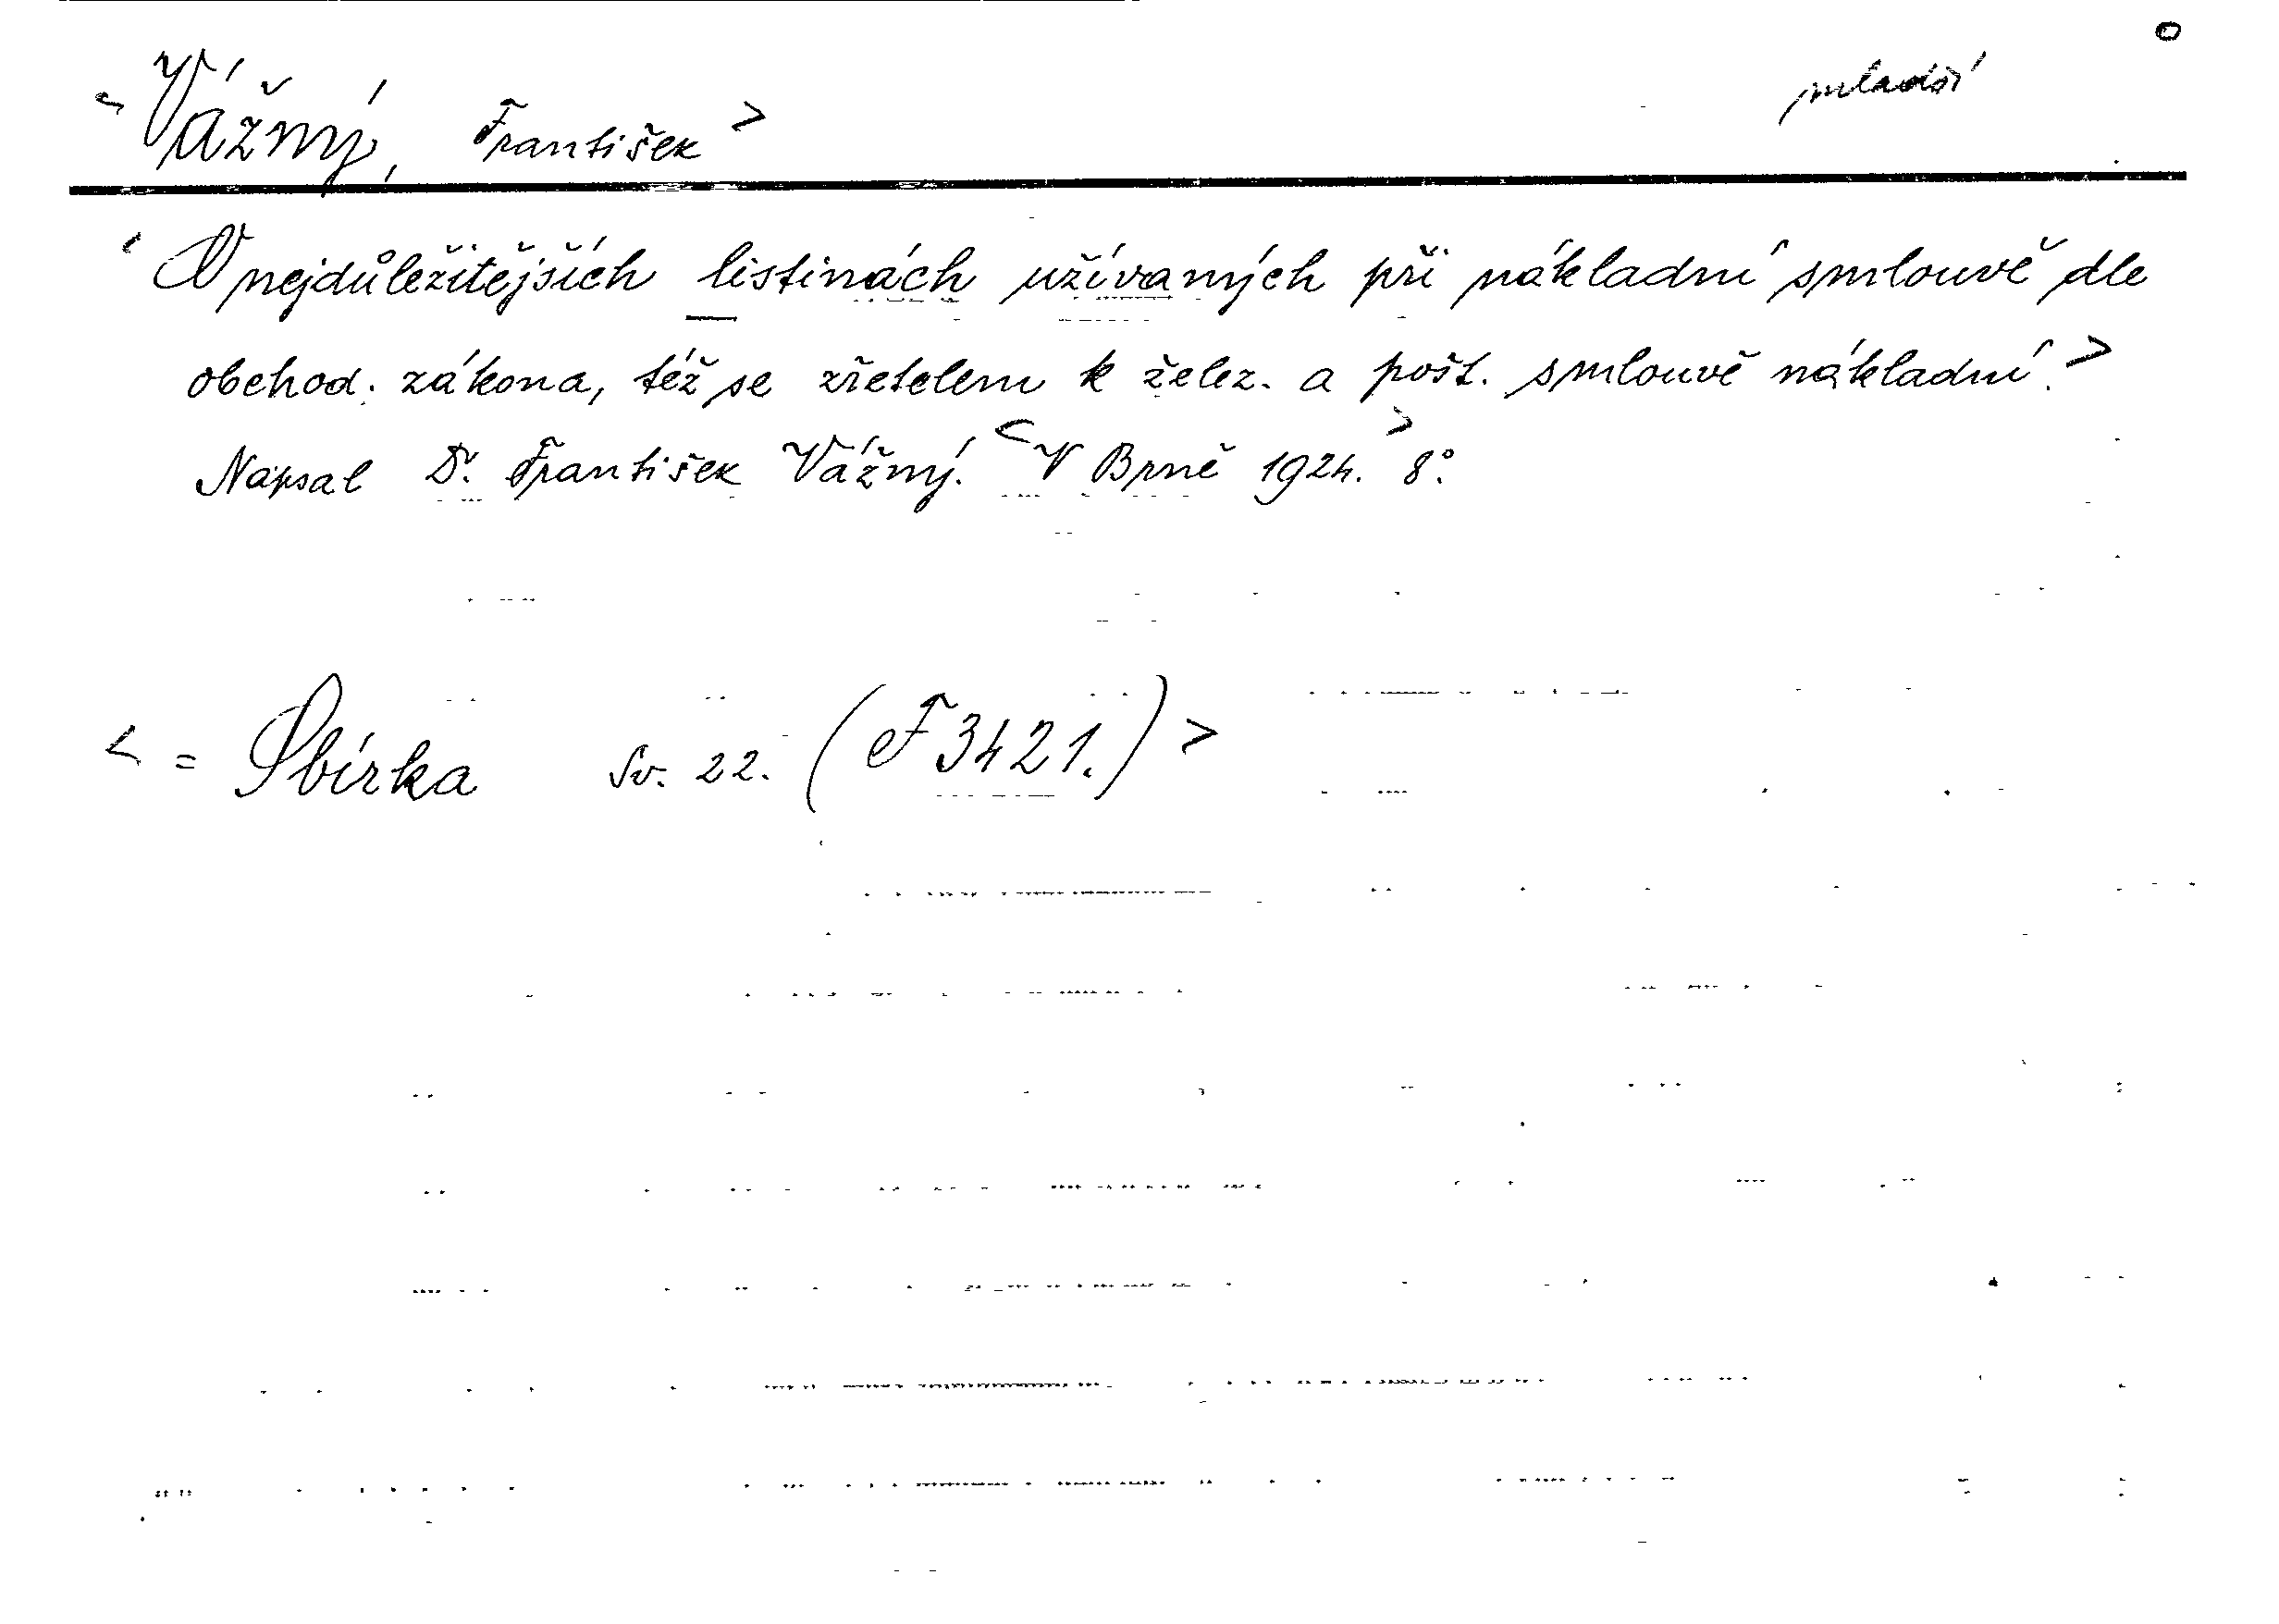 < Vážný, František > mladší
< O nejdůležitějších listinách užívaných při nákladní smlouvě dle
obchod. zákona, též se zřetelem k želez. a pošt. smlouvě nákladní. >
Napsal Dr. František Vážný. < V Brně 1924. > 8°.
< = Sbírka sv. 22. (F 3421.) >